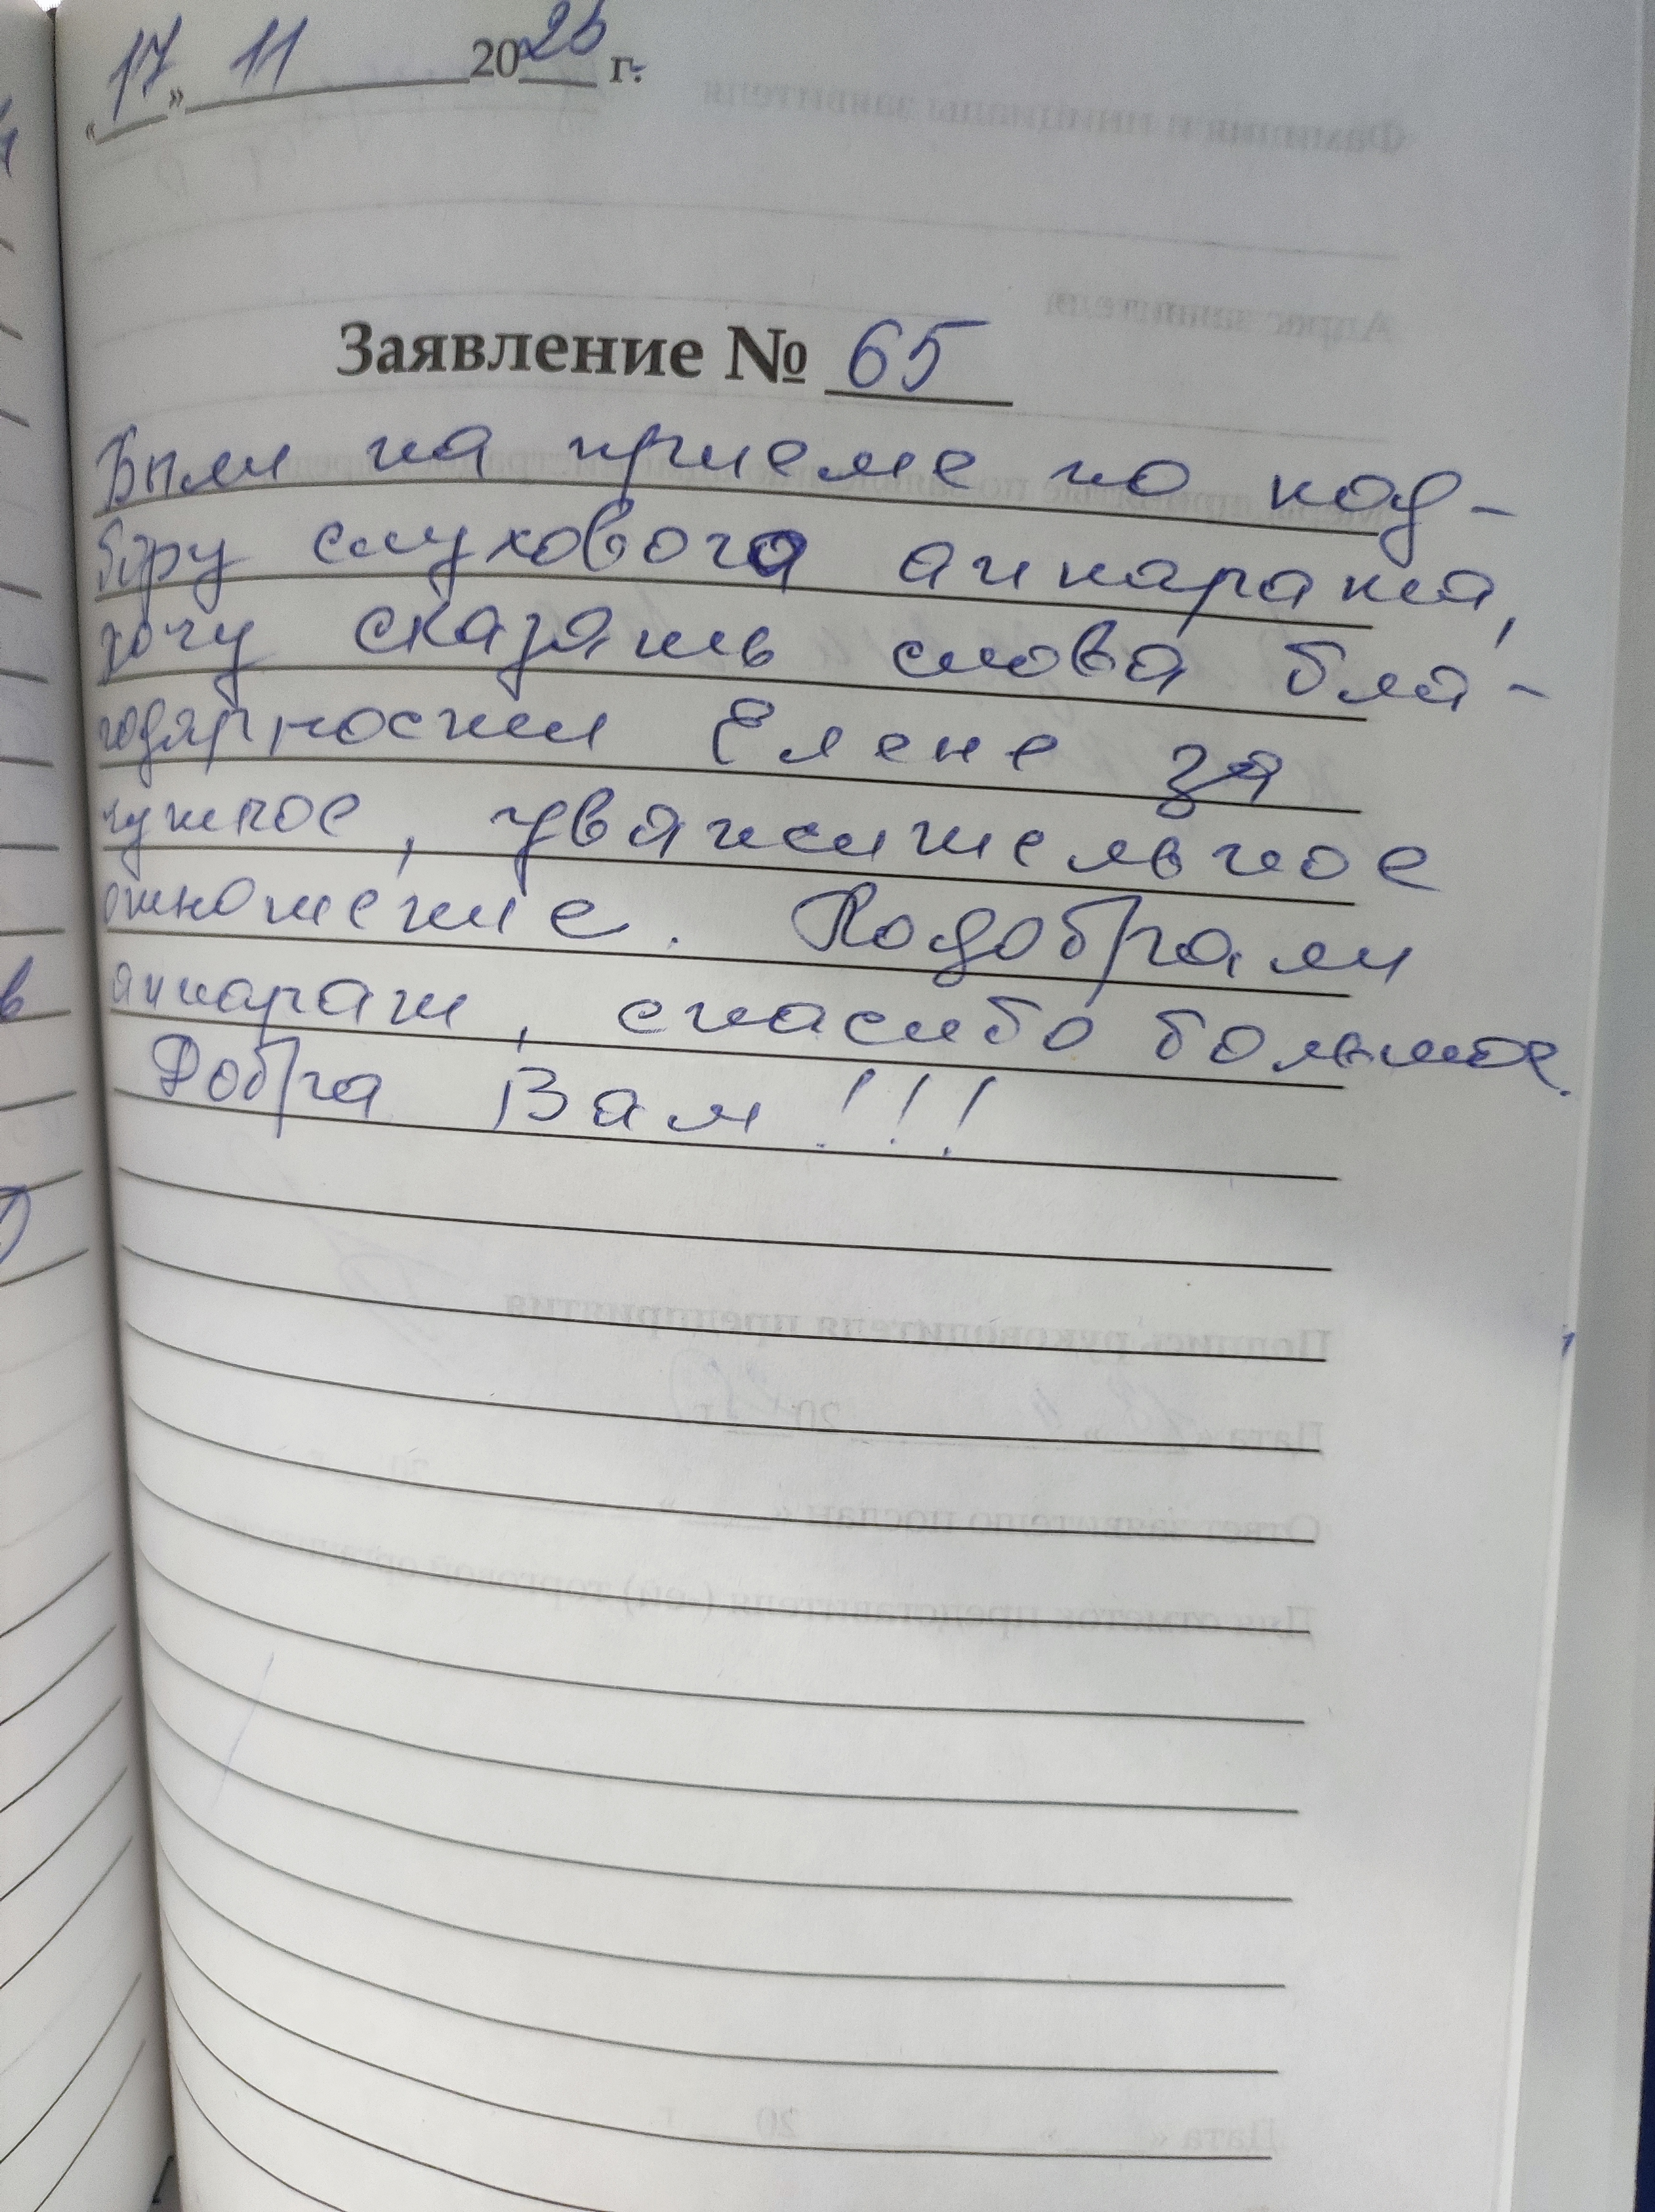 «17» 11 2025 г.
Заявление № 65
Были на приеме по под-
бору слухового аппарата,
хочу сказать слова бла-
годарности Елене за
чуткое, уважительное
отношение. Подобрали
аппарат, спасибо большое.
Добра Вам!!!